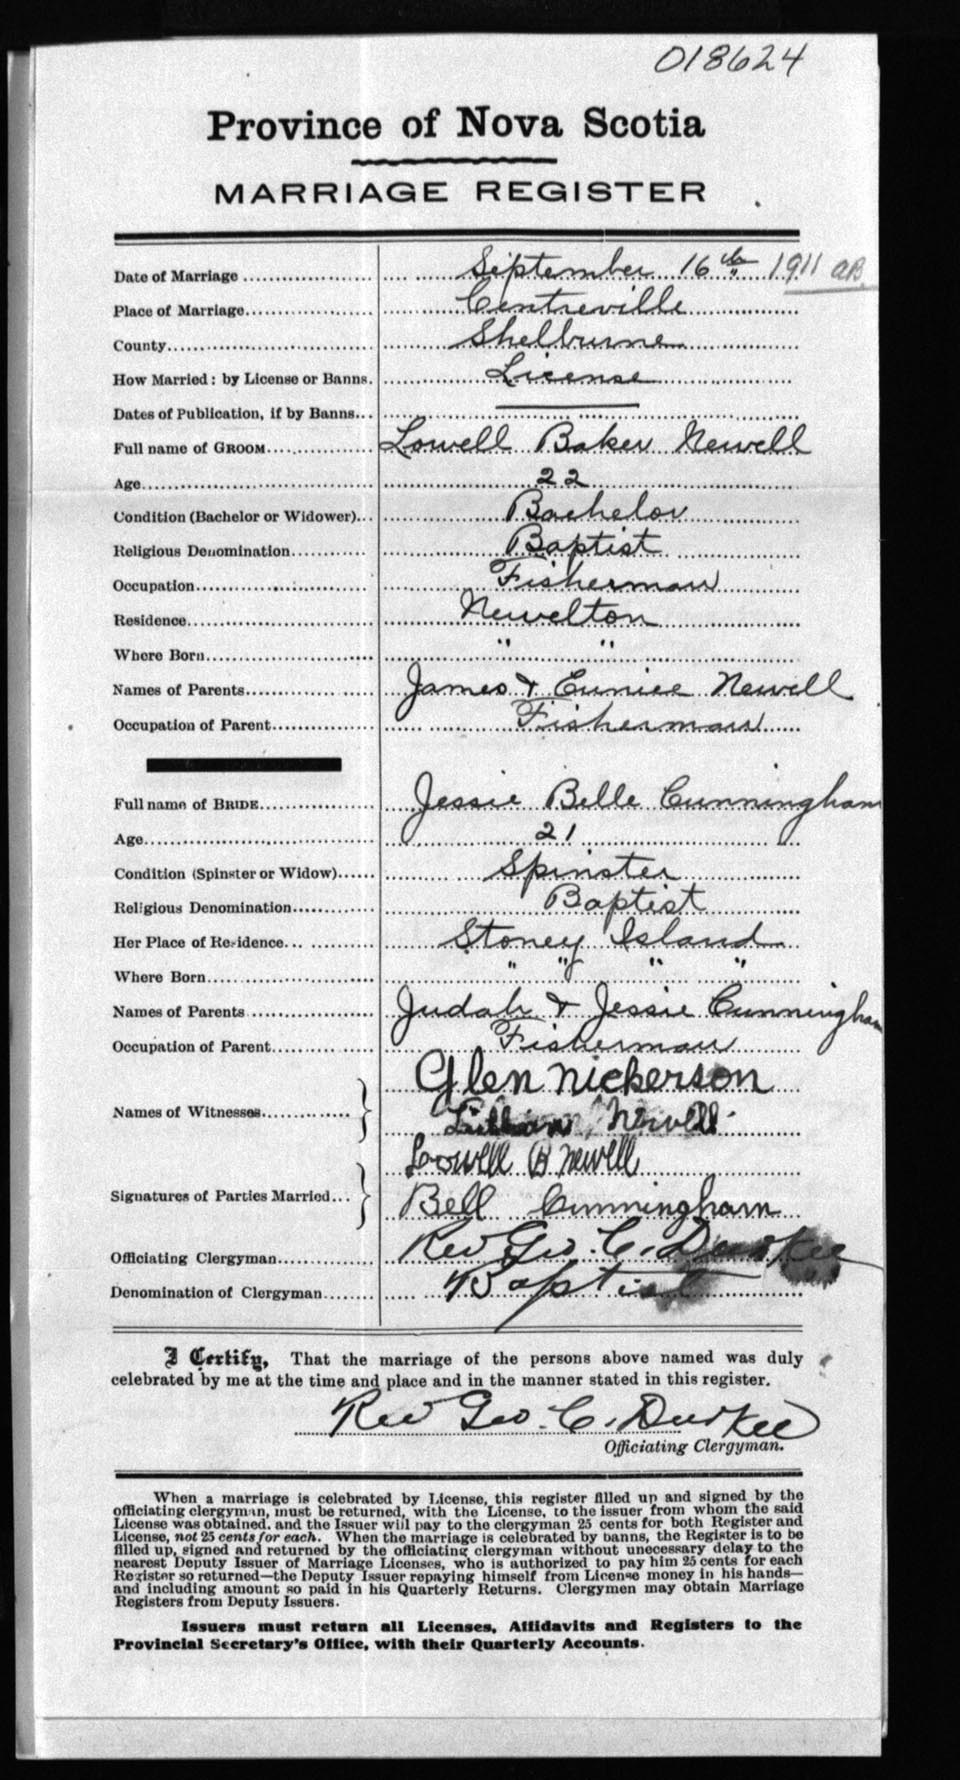 018624
Province of Nova Scotia
MARRIAGE REGISTER
Date of Marriage September 16th 1911 AB
Place of Marriage Centreville
County Shelburne
How Married: by License or Banns. License
Dates of Publication, if by Banns
Full name of GROOM Lowell Baker Newell
Age 22
Condition (Bachelor or Widower) Bachelor
Religious Denomination Baptist
Occupation Fisherman
Residence Newelton
Where Born " "
Names of Parents James & Eunice Newell
Occupation of Parent Fisherman
Full name of BRIDE Jessie Belle Cunningham
Age 21
Condition (Spinster or Widow) Spinster
Religious Denomination Baptist
Her Place of Residence Stoney Island
Where Born " " " "
Names of Parents Judah & Jessie Cunningham
Occupation of Parent Fisherman
Glen Nickerson
Names of Witnesses
Lillian Newell
Lowell B Newell
Signatures of Parties Married
Bell Cunningham
Officiating Clergyman Rev Geo. C. Durkee
Denomination of Clergyman Baptist
I Certify, That the marriage of the persons above named was duly
celebrated by me at the time and place and in the manner stated in this register.
Rev Geo. C. Durkee
Officiating Clergyman.
When a marriage is celebrated by License, this register filled up and signed by the
officiating clergyman, must be returned, with the License, to the issuer from whom the said
License was obtained, and the Issuer will pay to the clergyman 25 cents for both Register and
License, not 25 cents for each. When the marriage is celebrated by banns, the Register is to be
filled up, signed and returned by the officiating clergyman without unecessary delay to the
nearest Deputy Issuer of Marriage Licenses, who is authorized to pay him 25 cents for each
Register so returned—the Deputy Issuer repaying himself from License money in his hands—
and including amount so paid in his Quarterly Returns. Clergymen may obtain Marriage
Registers from Deputy Issuers.
Issuers must return all Licenses, Affidavits and Registers to the
Provincial Secretary's Office, with their Quarterly Accounts.